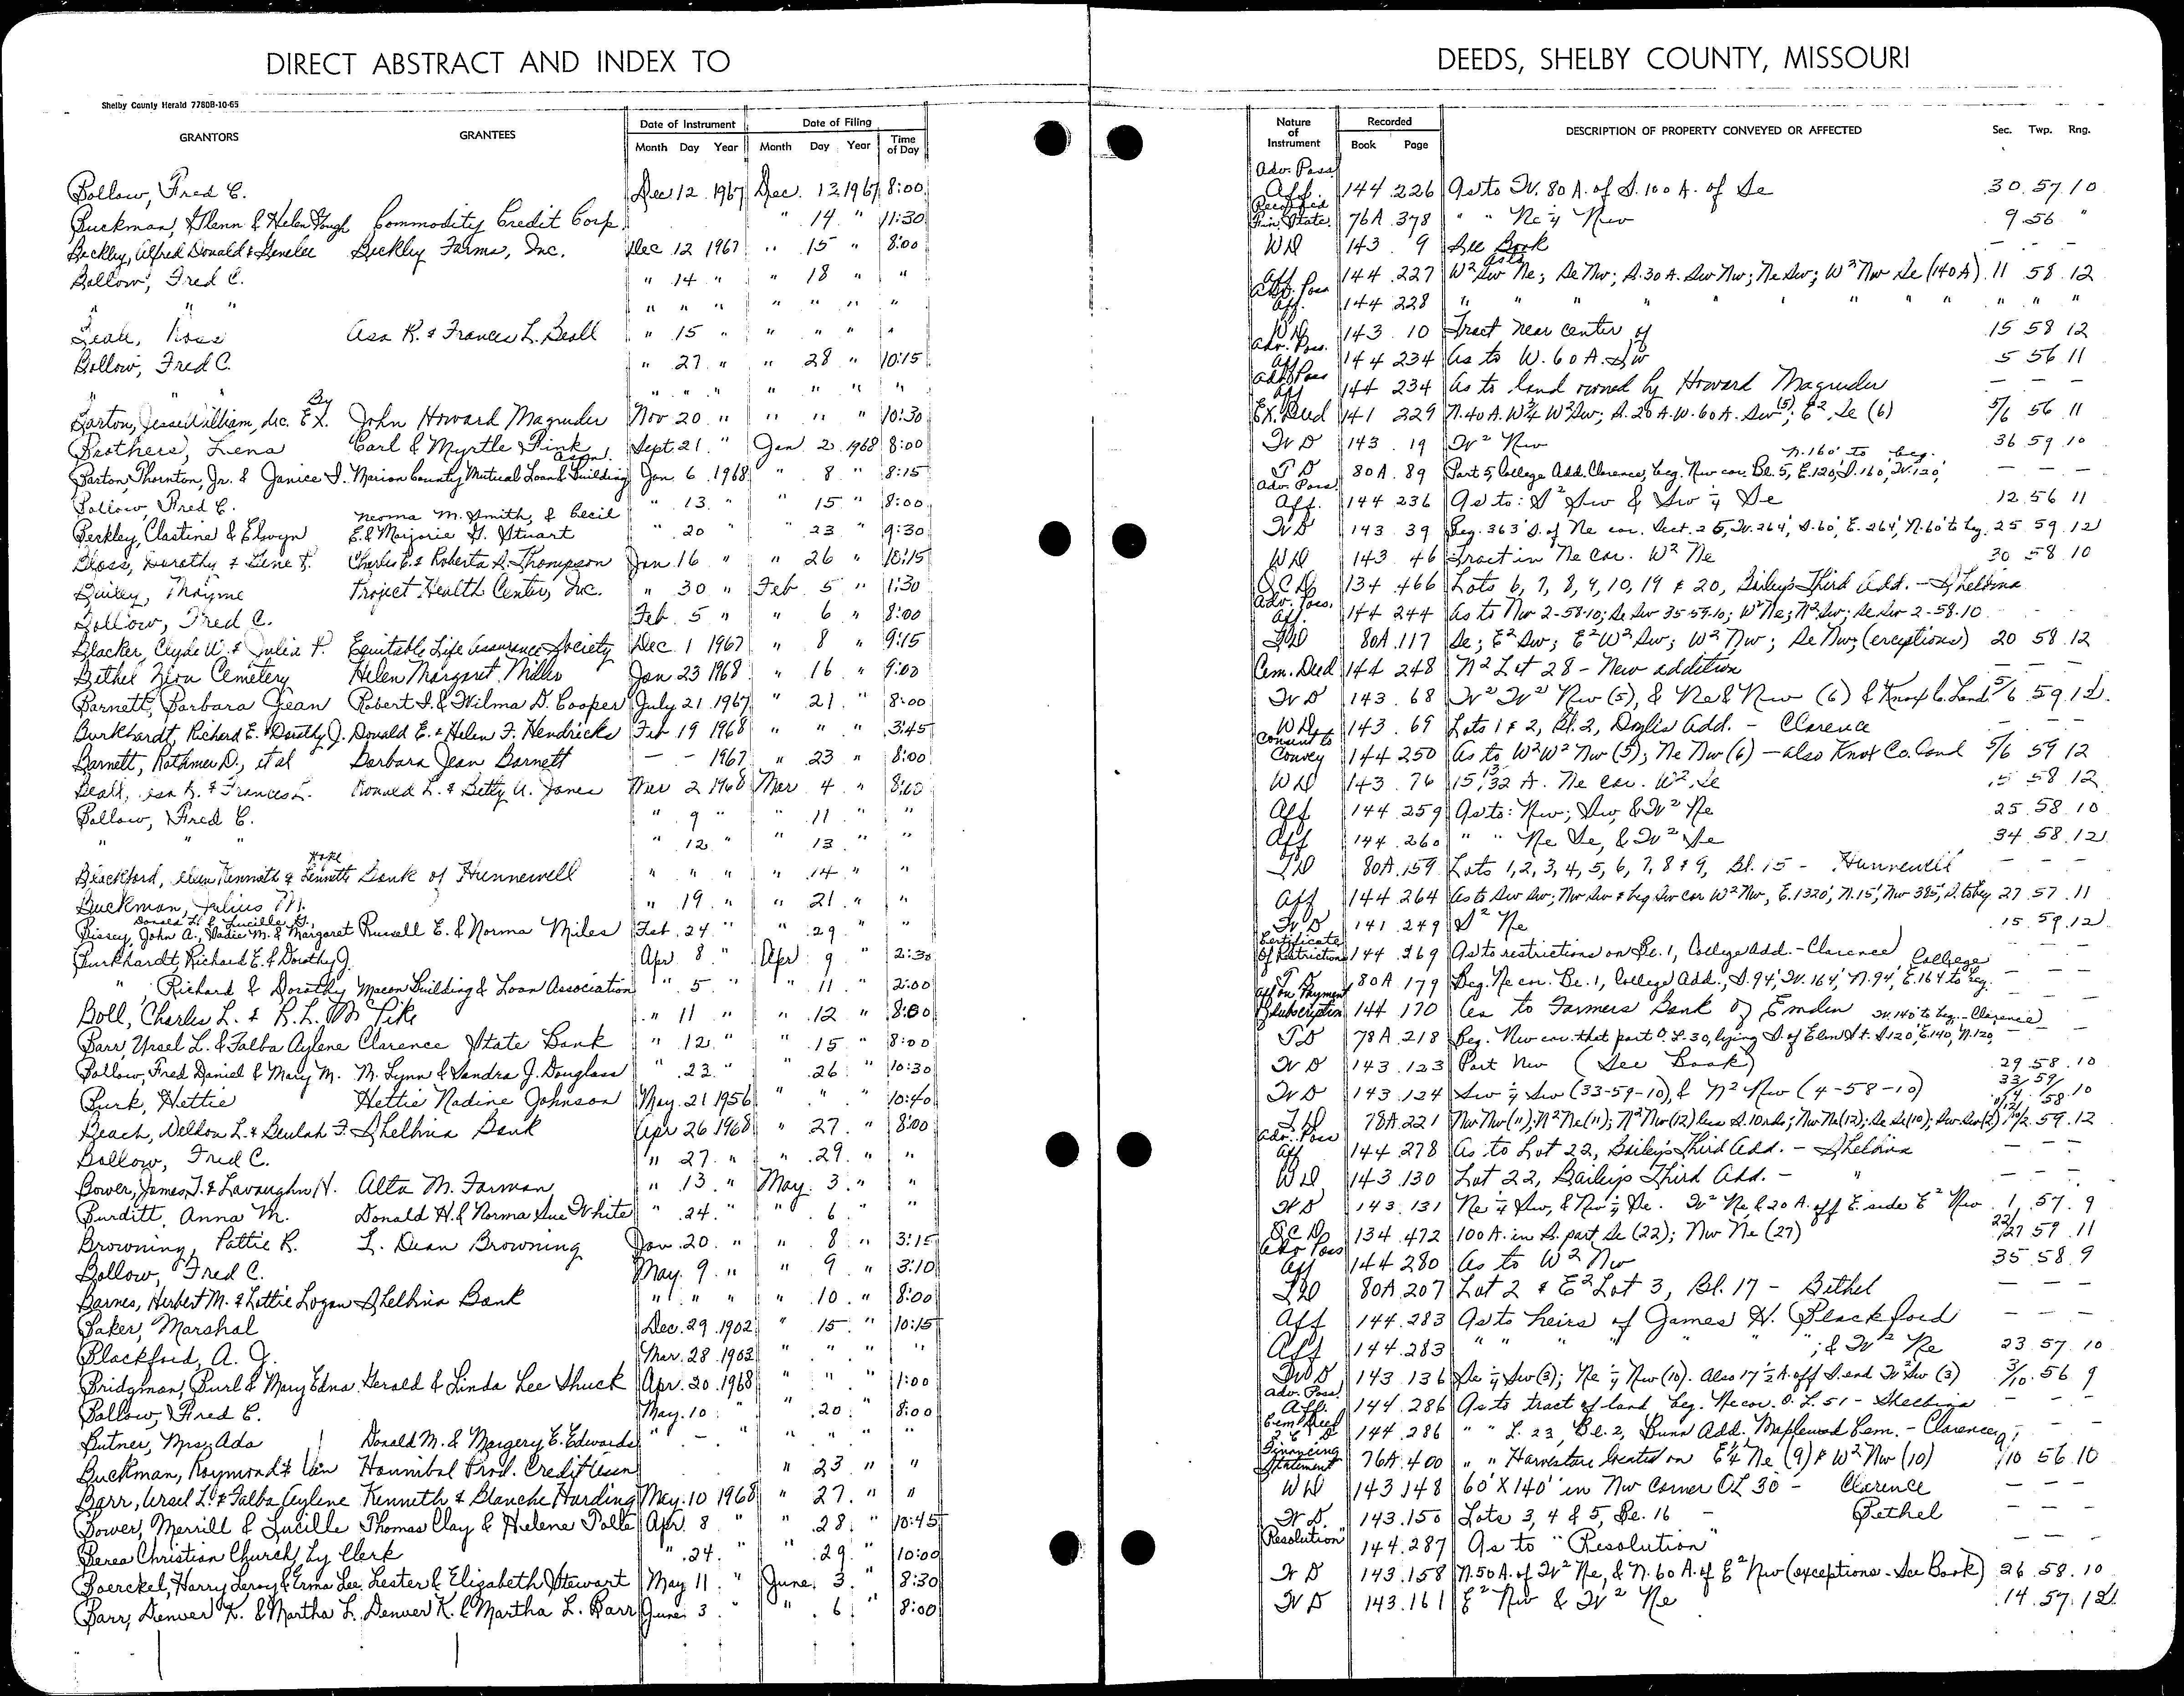 DIRECT ABSTRACT AND INDEX TO DEEDS, SHELBY COUNTY, MISSOURI
Shelby County Herald 7780B-10-65
GRANTORS GRANTEES Date of Instrument Month Day Year Date of Filing Month Day Year Time of Day Nature of Instrument Recorded Book Page DESCRIPTION OF PROPERTY CONVEYED OR AFFECTED Sec. Twp. Rng.
Bollow, Fred C. Dec 12 1967 Dec. 12 1967 8:00 Adv. Poss. Aff. 144 226 As to W. 80 A. of S. 100 A. of Se 30 57 10
Buckman, Glenn & Helen Gough Commodity Credit Corp. " 14 " 11:30 Fin. State. 76A 378 " " Ne 1/4 Nw 9 56 "
Beckley, Alfred Donald & Genelee Beckley Farms, Inc. Dec 12 1967 " 15 " 8:00 WD 143 9 See Book — — —
Bollow, Fred C. " 14 " " 18 " " Aff 144 227 As to W² Sw Ne; Se Nw; S. 30 A. Sw Nw; Ne Sw; W² Nw Se (140 A) 11 58 12
" " " " " " " " " " Adv. Poss Aff. 144 228 " " " " " " " " " " "
Beall, Ross Asa R. & Frances L. Beall " 15 " " " " " WD 143 10 Tract near center of 15 58 12
Bollow, Fred C. " 27 " " 28 " 10:15 Adv. Poss. Aff 144 234 As to W. 60 A. Sw 5 56 11
" " " " " " " " " Adv Poss Aff 144 234 As to land owned by Howard Magruder — — —
Barton, Jesse William, dec. By Ex. John Howard Magruder Nov 20 " " " " 10:30 Ex. Deed 141 229 N. 40 A. W 3/4 W² Sw; S. 20 A. W. 60 A. Sw (5); E² Se (6) 5/6 56 11
Brothers, Lena Carl & Myrtle Fink Sept 21 " Jan 2 1968 8:00 WD 143 19 W² Nw 36 59 10
Barton, Thornton, Jr. & Janice S. Marion County Mutual Loan & Building Assn. Jan 6 1968 " 8 " 8:15 TD 80A 89 Part 5, College Add. Clarence, beg. Nw cor. Bl. 5, E. 120', S. 160', W. 120', N. 160' to beg. — — —
Bollow, Fred C. " 13 " " 15 " 8:00 Adv. Poss Aff. 144 236 As to: S² Sw & Sw 1/4 Se 12 56 11
Berkley, Clastine & Elwyn Neoma M. Smith, & Cecil E. & Marjorie G. Stuart " 20 " 23 " 9:30 WD 143 39 Beg. 363' S. of Ne cor. Sect. 25, W. 264', S. 60', E. 264', N. 60' to beg. 25 59 12
Bloss, Dorothy & Gene F. Charles E. & Roberta A. Thompson Jan 16 " " 26 " 10:15 WD 143 46 Tract in Ne cor. W² Ne 30 58 10
Bailey, Mayme Project Health Center, Inc. " 30 " Feb 5 " 1:30 QCD 134 466 Lots 6, 7, 8, 9, 10, 19 & 20, Bailey's Third Add. — Shelbina
Bollow, Fred C. Feb. 5 " " 6 " 8:00 Adv. Poss. Aff. 144 244 As to Nw 2-58-10; Se Sw 35-59-10; W² Ne; N² Sw; Se Sw 2-58-10
Blacker, Clyde W. & Julia P. Equitable Life Assurance Society Dec 1 1967 " 8 " 9:15 TD 80A 117 Se; E² Sw; E² W² Sw; W² Nw; Se Nw; (exceptions) 20 58 12
Bethel Zion Cemetery Helen Margaret Miller Jan 23 1968 " 16 " 9:00 Cem. Deed 144 248 N² Lot 28 - New addition — — —
Barnett, Barbara Jean Robert I. & Wilma D. Cooper July 21 1967 " 21 " 8:00 WD 143 68 W² W² Nw (5), & Ne & Nw (6) & Knox Co. Land 5/6 59 12
Burkhardt, Richard E. & Dorothy J. Donald E. & Helen F. Hendricks Feb 19 1968 " " " 3:45 WD 143 69 Lots 1 & 2, Bl. 2, Doyles Add. - Clarence — — —
Barnett, Rathmer D., et al Barbara Jean Barnett — — 1967 " 23 " 8:00 Consent to Convey 144 250 As to W² W² Nw (5); Ne Nw (6) — also Knox Co. Land 5/6 59 12
Beall, Asa R. & Frances L. Ronald L. & Betty A. Jones Mar 2 1968 Mar 4 " 8:00 WD 143 76 A. Ne cor. W² Se 15 58 12
Bollow, Fred C. " 9 " " 11 " " Aff 144 259 As to: Nw; Sw, & W² Ne 25 58 10
" " " 12 " " 13 " " Aff 144 260 " " Ne Se, & W² Se 34 58 12
Blackford, Kenneth & Bank of Hunnewell " " " " 14 " " TD 80A 159 Lots 1, 2, 3, 4, 5, 6, 7, 8 & 9, Bl. 15 - Hunnewell — — —
Buckman, Julius M. " 19 " " 21 " " Aff 144 264 As to Sw Sw; Nw Sw & beg Sw cor W² Nw, E. 1320', N. 15', Nw 385', S. to beg 27 57 11
Bissey, John A., Sadie M. & Margaret Donald L. & Lucille G. Russell E. & Norma Miles Feb. 24 " " 29 " " WD 141 249 S² Ne 15 59 12
Burkhardt, Richard E. & Dorothy J. Apr 8 " Apr 9 " 2:30 Certificate Of Restriction 144 269 As to restrictions on Bl. 1, College Add. - Clarence — — —
" Richard & Dorothy Macon Building & Loan Association " 5 " " 11 " 2:00 TD 80A 179 Beg. Ne cor. Bl. 1, College Add., S. 94', W. 164', N. 94', E. 164 to beg. College — — —
Boll, Charles L. & R. L. M Pike " 11 " " 12 " 8:00 Aff on Payment Subscription 144 170 As to Farmers Bank of Emden — — —
Barr, Ursel L. & Falba Aylene Clarence State Bank " 12 " " 15 " 8:00 TD 78A 218 Beg. Nw cor. that part O. L. 30, lying S. of Elm St. S. 120', E. 140', N. 120, W. 140' to beg. - Clarence — — —
Bollow, Fred Daniel & Mary M. M. Lynn & Sandra J. Douglass " 23 " " 26 " 10:30 WD 143 123 Part Nw (See Book) 29 58 10
Burk, Hettie Hettie Nadine Johnson May 21 1956 " " " 10:40 WD 143 124 Sw 1/4 Sw (33-59-10), & N² Nw (4-58-10) 33/4 59/58 10
Beach, Weldon L. & Beulah F. Shelbina Bank Apr 26 1968 " 27 " 8:00 TD 78A 221 Nw Nw (11); N² Ne (11); N² Nw (12) less S. 10 rds; Nw Ne (12); Se Se (10); Sw Sw (2) 59 12
Bollow, Fred C. " 27 " " 29 " " Adv. Poss Aff 144 278 As to Lot 22, Bailey's Third Add. - Shelbina — — —
Bower, James T. & Lavaughn H. Alta M. Farman " 13 " May 3 " " WD 143 130 Lot 22, Bailey's Third Add. - " — — —
Burditt, Anna M. Donald H. & Norma Sue White " 24 " " 6 " " WD 143 131 Ne 1/4 Sw, & Nw 1/4 Se. W² Ne, & 20 A. off E. side E² Nw 1 57 9
Browning, Pattie R. L. Dean Browning Jan 20 " " 8 " 3:15 QCD 134 472 100 A. in S. part Se (22); Nw Ne (27) 22/27 59 11
Bollow, Fred C. May 9 " " 9 " 3:10 Adv Poss Aff 144 280 As to W² Nw 35 58 9
Barnes, Herbert M. & Lottie Logan Shelbina Bank " " " " 10 " 8:00 TD 80A 207 Lot 2 & E² Lot 3, Bl. 17 - Bethel — — —
Baker, Marshal Dec. 29 1902 " 15 " 10:15 Aff 144 283 As to heirs of James H. Blackford — — —
Blackford, A. J. Mar. 28 1903 " " " " Aff 144 283 " " " " " ; & W² Ne 23 57 10
Bridgman, Burl & Mary Edna Gerald & Linda Lee Shuck Apr. 20 1968 " " " 1:00 WD 143 136 Se 1/4 Sw (3); Ne 1/4 Nw (10). Also 17 1/2 A. off S. end W² Sw (3) 3/10 56 9
Bollow, Fred C. May 10 " " 20 " 8:00 Adv. Poss. Aff. 144 286 As to tract of land beg. Ne cor. O. L. 51 - Shelbina — — —
Butner, Mrs. Ada Donald M. & Margery E. Edwards " — " " " " " Cem Deed 144 286 " " L. 23, Bl. 2, Bunn Add. Maplewood Cem. - Clarence — — —
Buckman, Raymond & Hannibal Prod. Credit Assn " 23 " " Financing Statement 76A 400 " " Harvestore located on E 1/2 Ne (9) & W² Nw (10) 9/10 56 10
Barr, Ursel L. & Falba Aylene Kenneth & Blanche Harding May 10 1968 " 27 " " WD 143 148 60' X 140' in Nw Corner OL 30 - Clarence — — —
Bower, Merrill & Lucille Thomas Clay & Helene Polle Apr. 8 " " 28 " 10:45 WD 143 150 Lots 3, 4 & 5, Bl. 16 - Bethel — — —
Berea Christian Church, by Clerk " 24 " " 29 " 10:00 "Resolution" 144 287 As to "Resolution" — — —
Boerckel, Harry Leroy & Erma Lee Lester & Elizabeth Stewart May 11 " June 3 " 8:30 WD 143 158 N. 50 A. of W² Ne, & N. 60 A. of E² Nw (exceptions - See Book) 26 58 10
Barr, Denver K. & Martha L. Denver K. & Martha L. Barr June 3 " " 6 " 8:00 WD 143 161 E² Nw & W² Ne 14 57 12